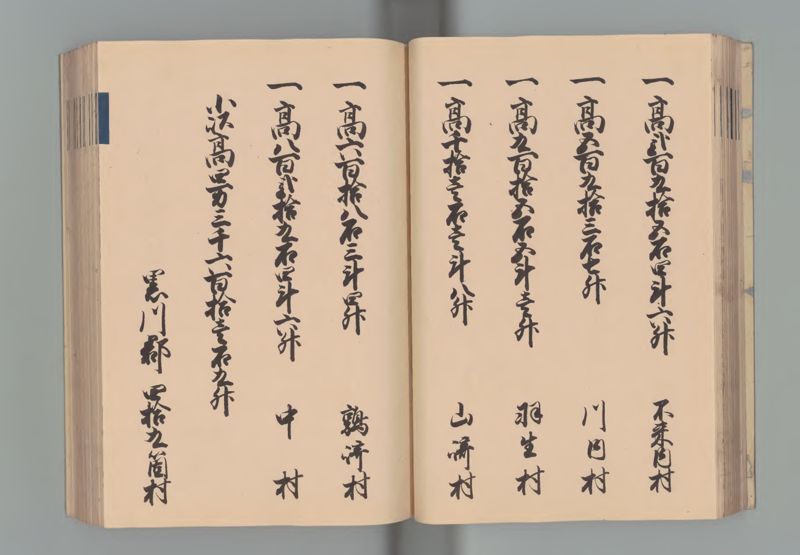 一高弐百九拾五石四斗六升 不来内村
一高五百九拾三石七升 川内村
一高九百拾五石五斗壱升 羽生村
一高千拾壱石壱斗八升 山済村
一高六百拾八石三斗四升 鶉済村
一高八百弐拾九石四斗六升 中村
小以高四万三千六百拾壱石九升
黒川郡 四拾九箇村